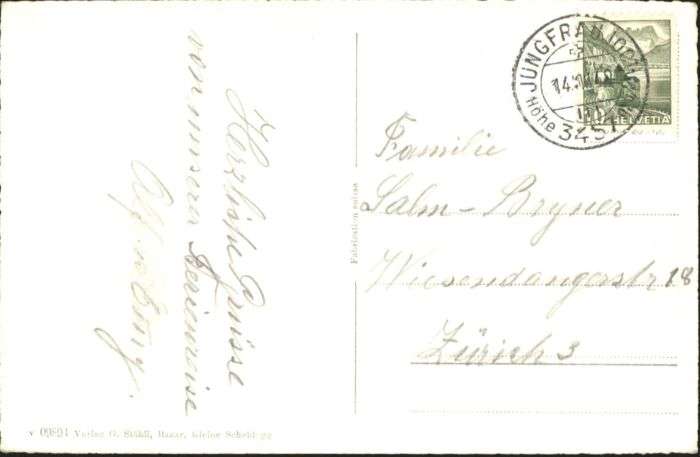 Herzliche Grüsse
von unserer Ferienreise
JUNGFRAUJOCH
Höhe 3457
HELVETIA
Fabrication suisse
Familie
Salm-Bryner
Wiesendangerstr 18
Zürich 3
Verlag G. Stähli, Bazar, Kleine Scheidegg